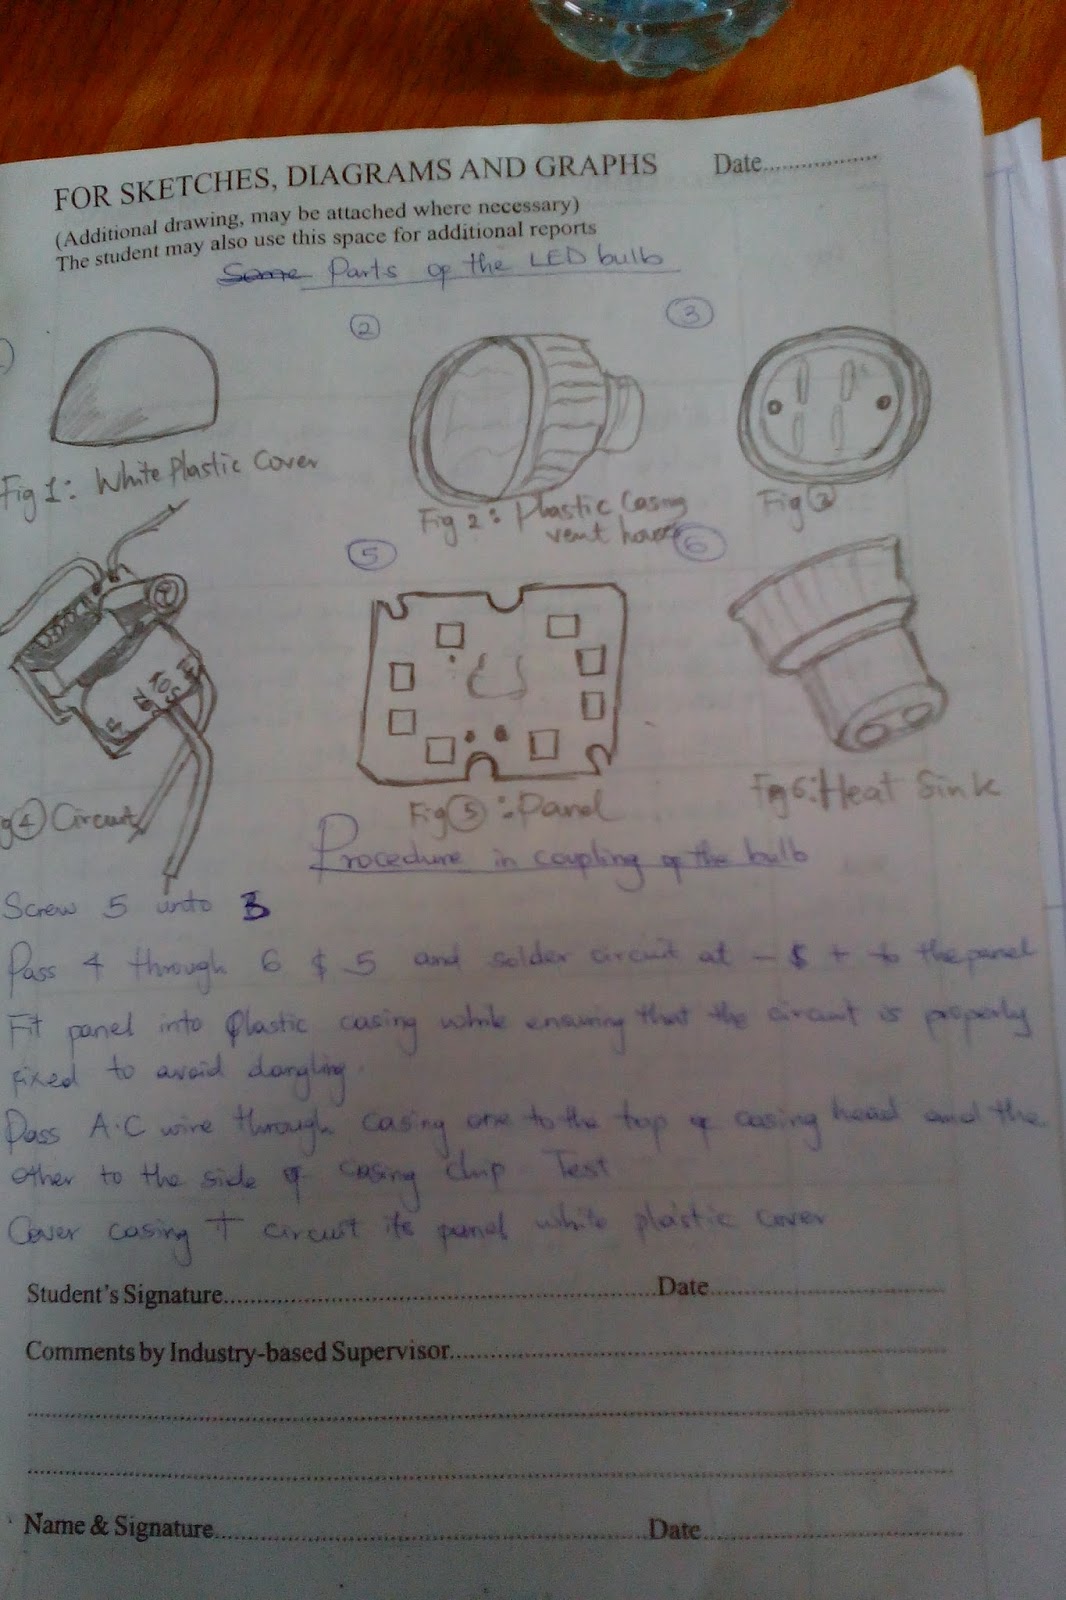 FOR SKETCHES, DIAGRAMS AND GRAPHS Date..................
(Additional drawing, may be attached where necessary)
The student may also use this space for additional reports
Some Parts of the LED bulb
2
3
Fig 1: White Plastic Cover
Fig 2: Plastic Casing
vent
Fig 3
5
6
Fig 4 Circuit
Fig 5: Panel
Fig 6: Heat Sink
Procedure in coupling of the bulb
Screw 5 unto 3
Pass 4 through 6 & 5 and solder circuit at - & + to the panel
Fit panel into plastic casing while ensuring that the circuit is properly
fixed to avoid dangling.
Pass A.C wire through casing one to the top of casing head and the
other to the side of casing Test
Cover casing + circuit its panel white plastic cover
Student's Signature..................Date..................
Comments by Industry-based Supervisor..................
Name & Signature..................Date..................